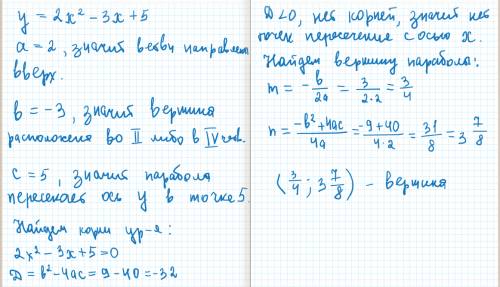 y = 2x² - 3x + 5
a = 2, значит ветви направлены
вверх.
в = -3, значит вершина
расположена во II либо в IV чев.
c = 5, значит парабола
пересекает ось y в точке 5.
Найдем корни ур-я:
2x² - 3x + 5 = 0
D = в² - 4ac = 9 - 40 = -32
D < 0, нет корней, значит нет
точек пересечение с осью x.
Найдем вершину парабола:
m = -в/2a = 3/2·2 = 3/4
n = -в²+4ac/4a = -9+40/4·2 = 31/8 = 3 7/8
(3/4; 3 7/8) - вершина